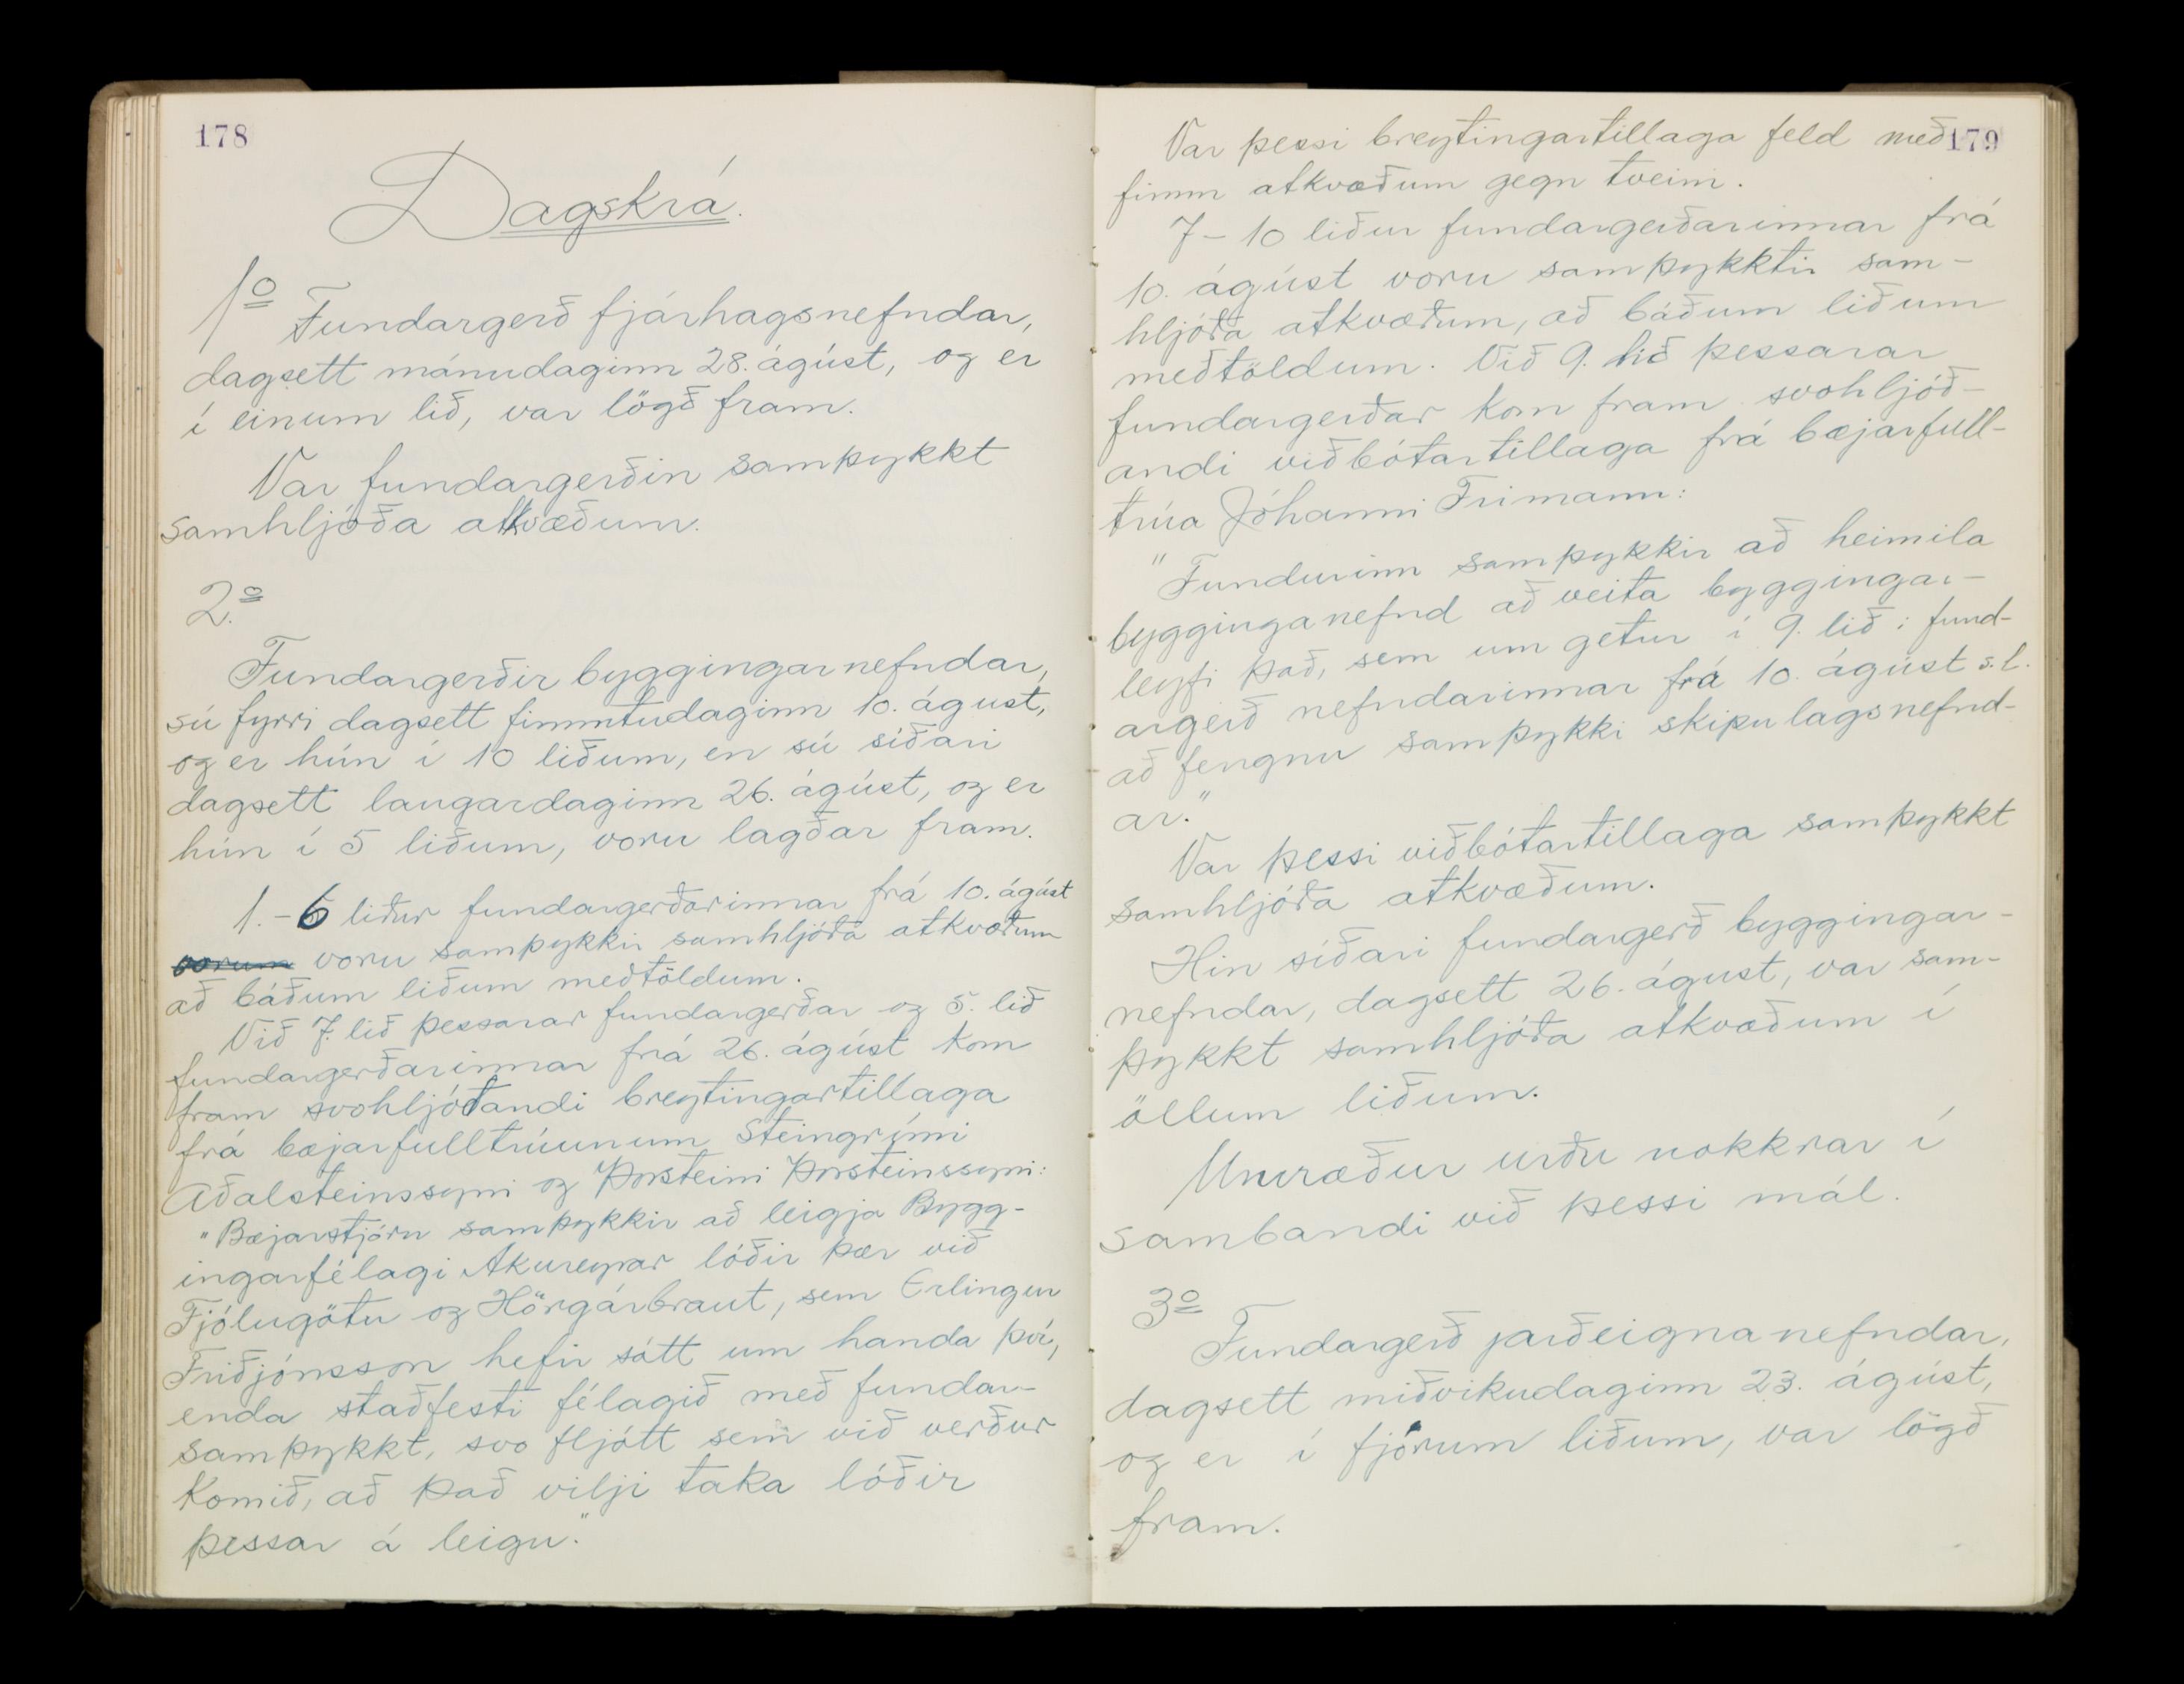 178
Dagskrá.
1º Fundargerð fjárhagsnefndar,
dagsett mánudaginn 28. ágúst, og er
í einum lið, var lögð fram.
Var fundargerðin samþykkt
samhljóða atkvæðum.
2.º
Fundargerðir byggingarnefndar,
sú fyrri dagsett fimmtudaginn 10. ágúst,
og er hún í 10 liðum, en sú síðari
dagsett laugardaginn 26. ágúst, og er
hún í 5 liðum, voru lagðar fram.
1.-6 liður fundargerðarinnar frá 10. ágúst
vorum voru samþykkir samhljóða atkvæðum
að báðum liðum meðtöldum.
Við 7. lið þessarar fundargerðar og 5. lið
fundargerðarinnar frá 26. ágúst kom
fram svohljóðandi breytingartillaga
frá bæjarfulltrúunum Steingrími
Aðalsteinssyni og Þorsteini Þorsteinssyni:
"Bæjarstjórn samþykkir að leigja Bygg-
ingarfélagi Akureyrar lóðir þær við
Fjólugötu og Hörgárbraut, sem Erlingur
Friðjónsson hefir sótt um handa því,
enda staðfesti félagið með fundar-
samþykkt, svo fljótt sem við verður
komið, að það vilji taka lóðir
þessar á leigu."
179
Var þessi breytingartillaga feld með
fimm atkvæðum gegn tveim.
7-10 liður fundargerðarinnar frá
10. ágúst voru samþykktir sam-
hljóða atkvæðum, að báðum liðum
meðtöldum. Við 9. lið þessarar
fundargerðar kom fram svohljóð-
andi viðbótartillaga frá bæjarfull-
trúa Jóhanni Frímann:
"Fundurinn samþykkir að heimila
bygginganefnd að veita byggingar-
leyfi það, sem um getur í 9. lið í fund-
argerð nefndarinnar frá 10. ágúst s.l.
að fengnu samþykki skipulagsnefnd-
ar."
Var þessi viðbótartillaga samþykkt
samhljóða atkvæðum.
Hin síðari fundargerð byggingar-
nefndar, dagsett 26. ágúst, var sam-
þykkt samhljóða atkvæðum í
öllum liðum.
Umræður urðu nokkrar í
sambandi við þessi mál.
3º
Fundargerð jarðeignanefndar,
dagsett miðvikudaginn 23. ágúst,
og er í fjórum liðum, var lögð
fram.